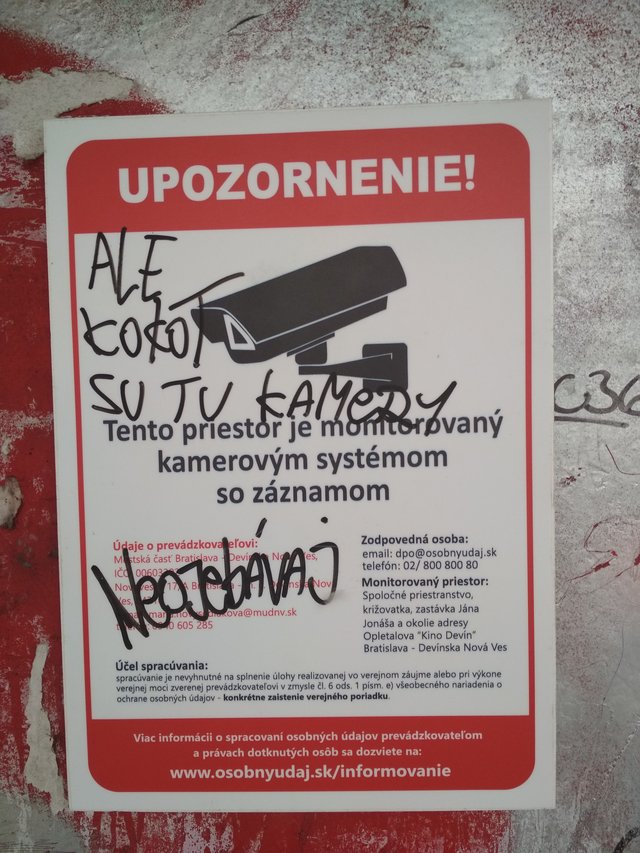 UPOZORNENIE!
ALE
KOKOT
SU TU KAMEDY
Tento priestor je monitorovaný
kamerovým systémom
so záznamom
Údaje o prevádzkovateľovi:
Mestská časť Bratislava - Devínska Nová Ves,
NEOJEBÁVAJ
Zodpovedná osoba:
email: dpo@osobnyudaj.sk
telefón: 02/ 800 800 80
Monitorovaný priestor:
Spoločné priestranstvo,
križovatka, zastávka Jána
Jonáša a okolie adresy
Opletalova "Kino Devín"
Bratislava - Devínska Nová Ves
Účel spracúvania:
spracúvanie je nevyhnutné na splnenie úlohy realizovanej vo verejnom záujme alebo pri výkone
verejnej moci zverenej prevádzkovateľovi v zmysle čl. 6 ods. 1 písm. e) všeobecného nariadenia o
ochrane osobných údajov - konkrétne zaistenie verejného poriadku.
Viac informácii o spracovaní osobných údajov prevádzkovateľom
a právach dotknutých osôb sa dozviete na:
www.osobnyudaj.sk/informovanie